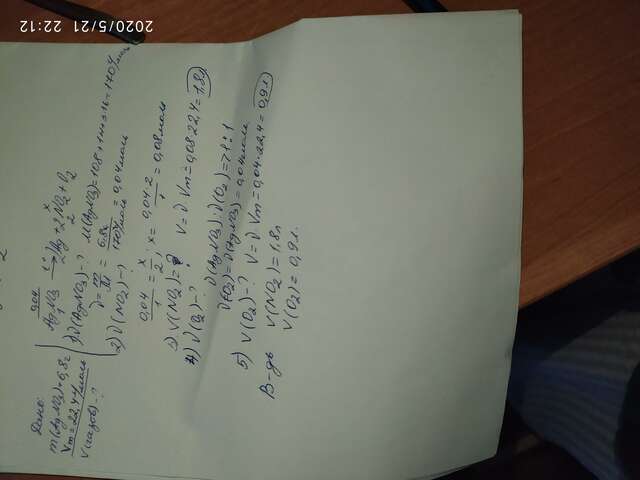 2020/5/21 22:12
Дано:
m(AgNO3)=6,8г
Vm=22,4л/моль
V(газов)-?
0,04 x
AgNO3 →t° Ag+2NO2+O2
1 2
1) ν(AgNO3)-? M(AgNO3)=108+14+3·16=170г/моль
ν=m/M = 6,8г/170г/моль = 0,04моль
2) ν(NO2)-?
0,04/1 = x/2; x= 0,04·2/1 =0,08моль
3) V(NO2)=? V=ν·Vm=0,08·22,4=1,8л
4) ν(O2)-? ν(AgNO3):ν(O2)=1:1
ν(O2)=ν(AgNO3)=0,04моль
5) V(O2)-? V=ν·Vm=0,04·22,4=0,9л
В-дь V(NO2)=1,8л
V(O2)=0,9л.